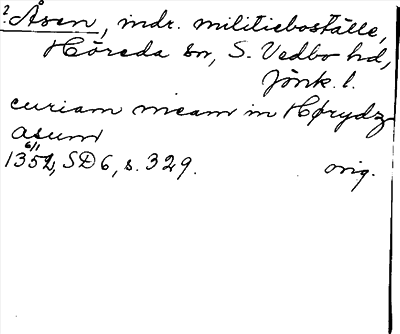 ? Åsen, indr. militieboställe,
Höreda sn, S. Vedbo hd,
Jönk. l.
curiam meam in Hørydz
asum
6/1
1352, SD 6, s. 329. orig.